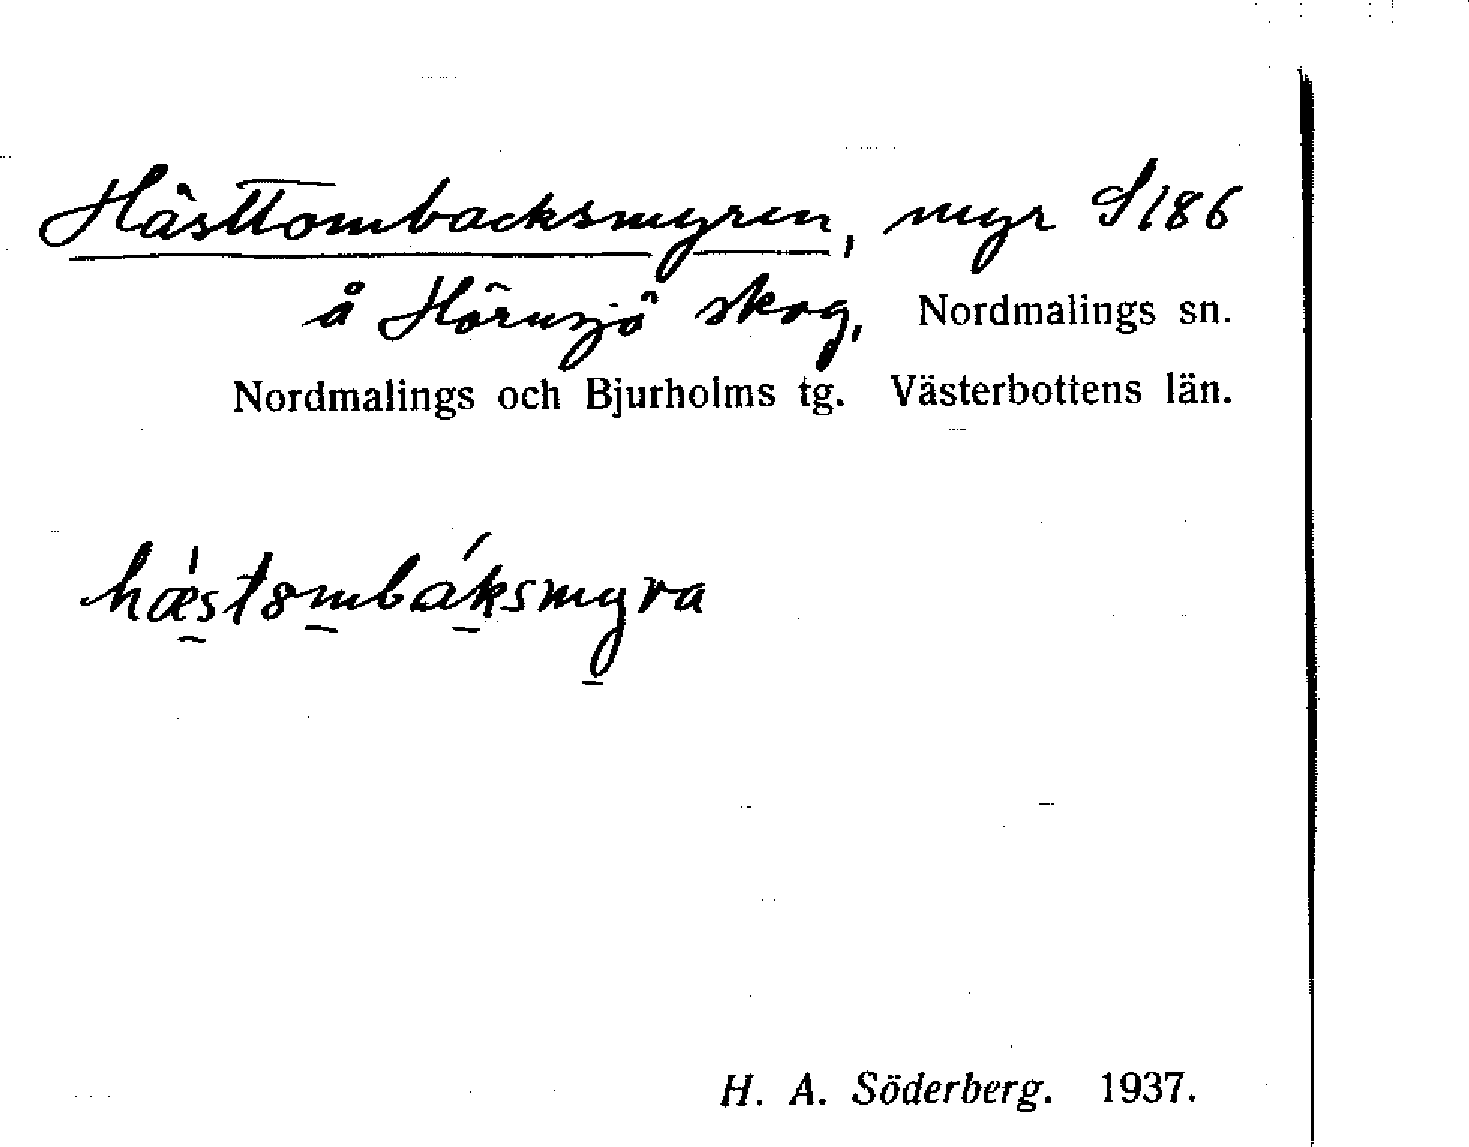 Hästtombacksmyren, myr S186
å Hörnsjö skog, Nordmalings sn.
Nordmalings och Bjurholms tg. Västerbottens län.
hæ̀stombáksmyra
H. A. Söderberg. 1937.